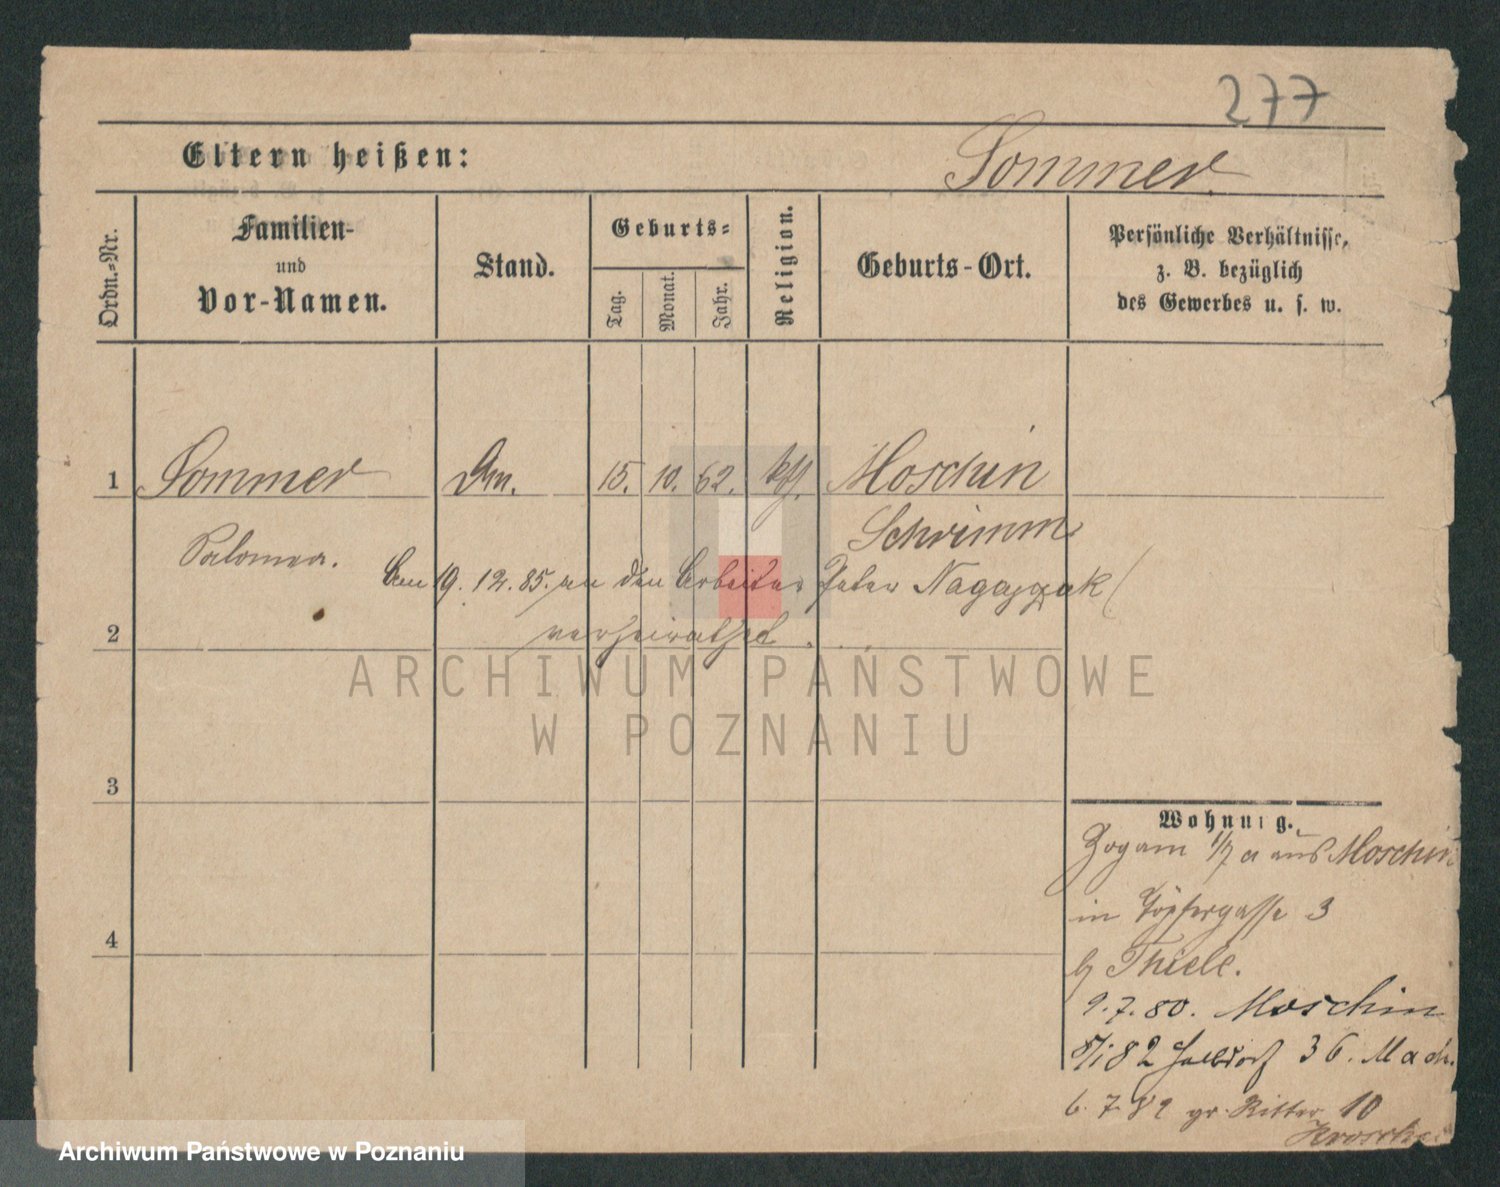 277
Eltern heißen:
Sommer
Ordn.-Nr.
Familien-
und
Vor-Namen.
Stand.
Geburts-
Tag.
Monat.
Jahr.
Religion.
Geburts-Ort.
Persönliche Verhältnisse,
z. B. bezüglich
des Gewerbes u. s. w.
1
Sommer
15. 10. 62. kth. Moschin
Schrimm
Salomea.
Am 19.12.85. an den Arbeiter Peter
verheirathet.
2
ARCHIWUM PAŃSTWOWE
W POZNANIU
3
Wohnung.
Zogam 1/7 a aus Moschin
in Töpfergasse 3
b/ Thiele.
4
9.7.80. Moschin
82 Halbdorf 36. Mach.
6.7.82 gr. Ritter 10
Archiwum Państwowe w Poznaniu